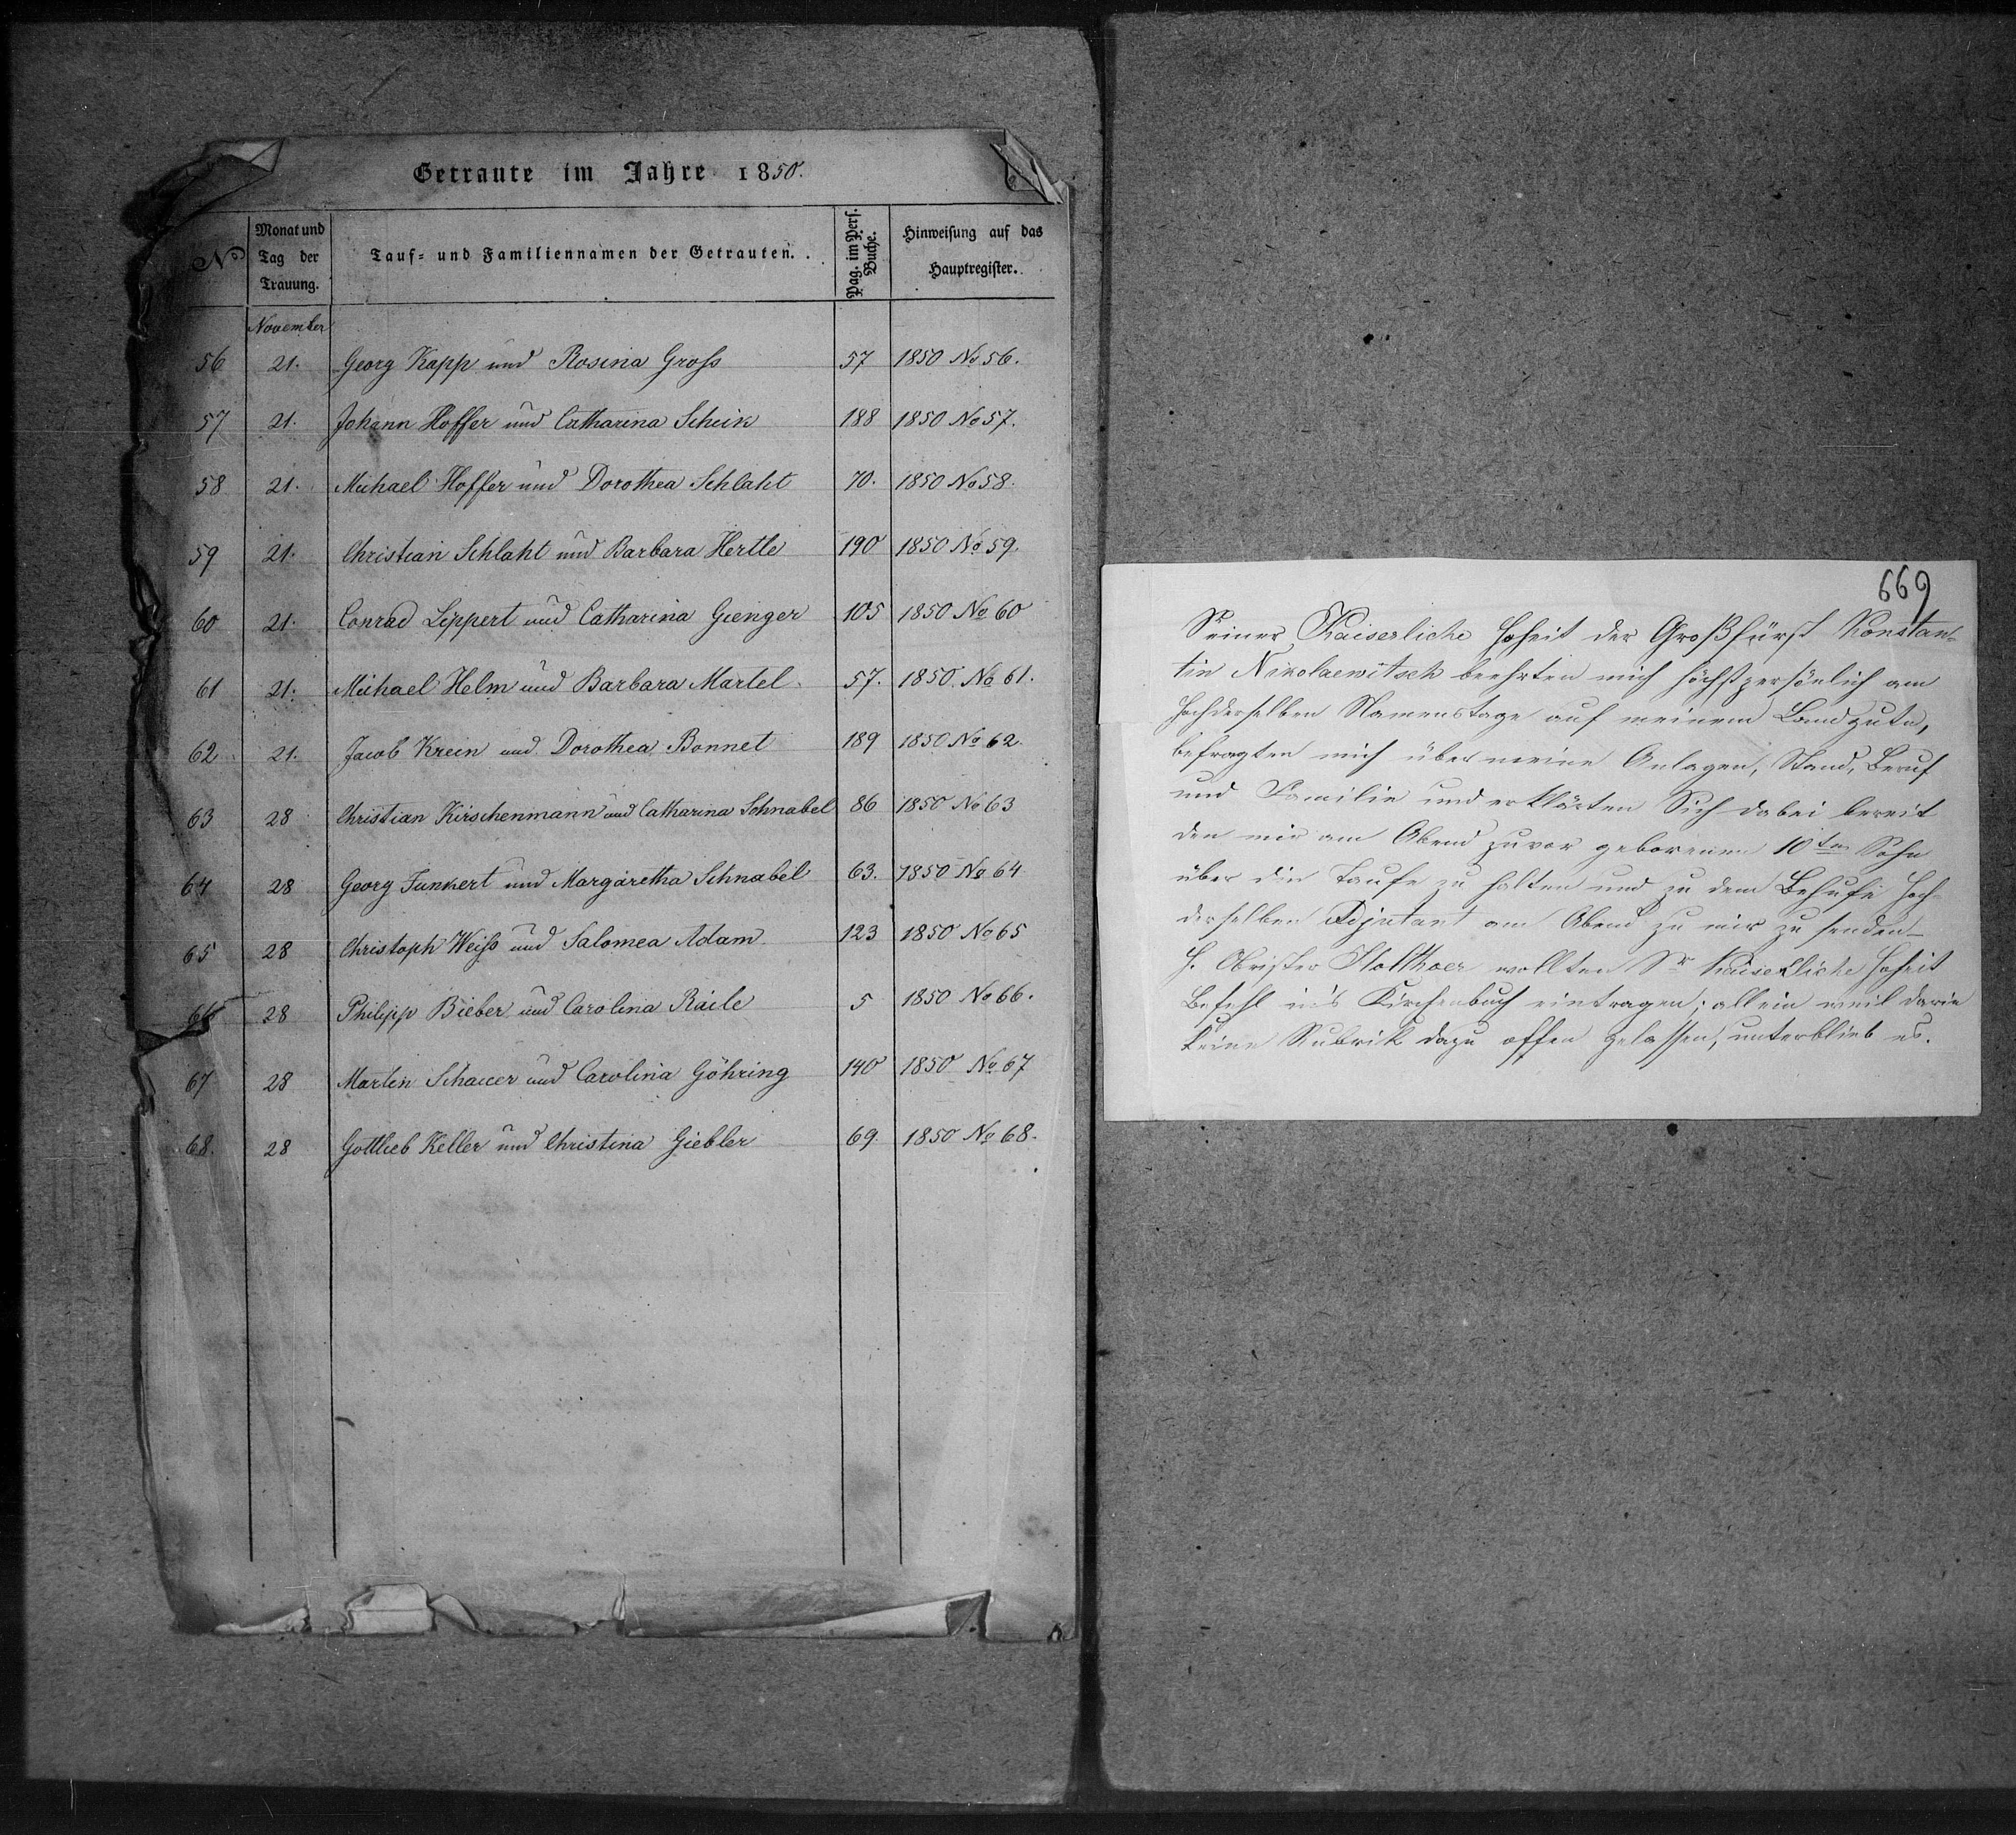 Getraute im Jahre 1850.
No Monat und Tag der Trauung. Tauf- und Familiennamen der Getrauten. Pag. im Pers. Buche. Hinweisung auf das Hauptregister.
November
56 21. Georg Kapp und Rosina Gross 57 1850 No 56.
57 21. Johann Hoffer und Catharina Scheik 188 1850 No 57.
58 21. Michael Hoffer und Dorothea Schlaht 70. 1850 No 58.
59 21. Christian Schlaht und Barbara Hertle 190 1850 No 59.
60 21. Conrad Lippert und Catharina Gienger 105 1850 No 60
61 21. Michael Helm und Barbara Martel 57. 1850. No 61.
62 21. Jacob Krein und Dorothea Bonnet 189 1850 No 62.
63 28 Christian Kirschenmann und Catharina Schnabel 86 1850 No 63
64 28 Georg Junkert und Margaretha Schnabel 63. 1850 No 64
65 28 Christoph Weiss und Salomea Adam. 123 1850 No 65
66 28 Philipp Bieber und Carolina Raile 5 1850 No 66.
67 28 Martin Schauer und Carolina Göhring 140 1850 No 67
68. 28 Gottlieb Keller und Christina Giebler 69. 1850 No 68.
669
Seiner Kaiserliche Hoheit der Großfürst Konstan-
tin Nikolaewitsch beehrten mich höchstpersönlich am
Hochderselben Namenstage auf meinem Landgute,
befragten mich über meine Anlagen, Stand, Beruf
und Familie und erklärten Sich dabei bereit
den mir am Abend zuvor geborenen 10ten Sohn
über die Taufe zu halten und zu dem Behufe Hoch-
derselben Adjutant am Abend zu mir zu senden_
H. Obrister wollten Sr Kaiserliche Hoheit
Befehl in's Kirchenbuch eintragen; allein weil darin
keine Rubrik dazu offen gelassen, unterblieb es.